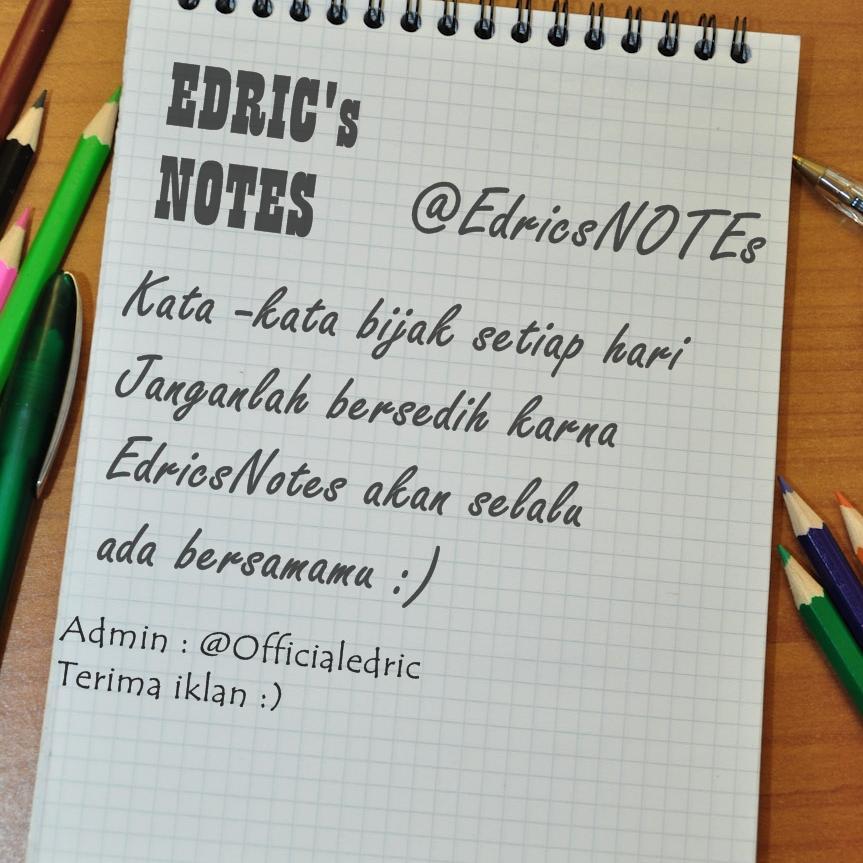 EDRIC's
NOTES
@EdricsNOTEs
Kata -kata bijak setiap hari
Janganlah bersedih karna
EdricsNotes akan selalu
ada bersamamu :)
Admin : @Officialedric
Terima iklan :)